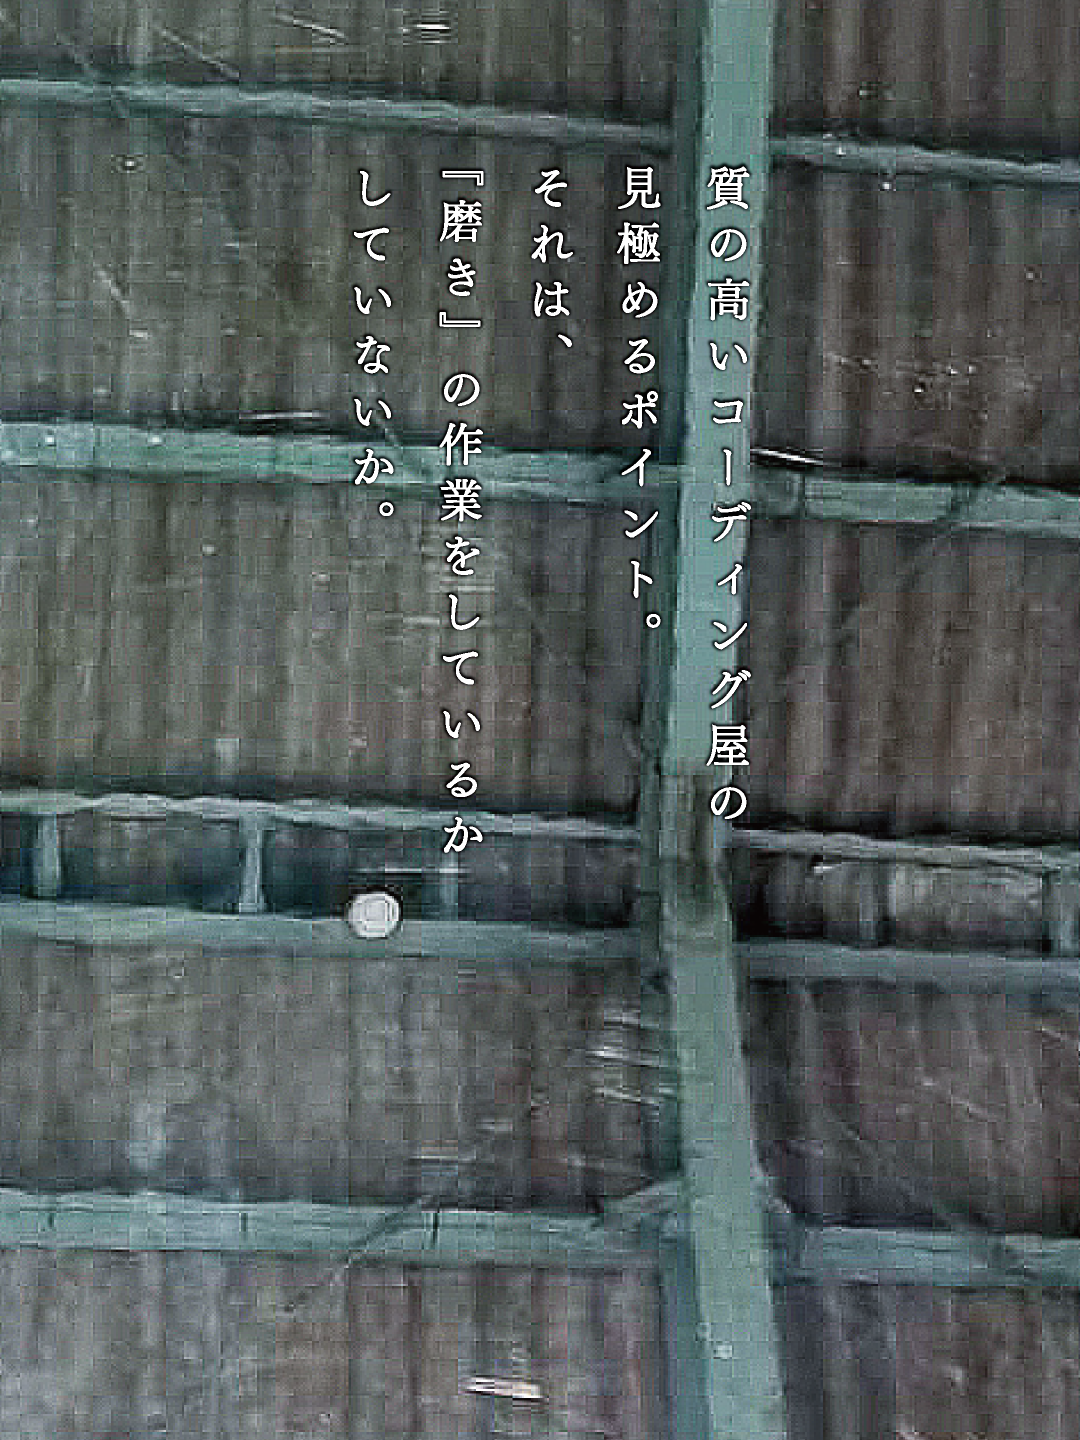 質の高いコーディング屋の
見極めるポイント。
それは、
『磨き』の作業をしているか
していないか。